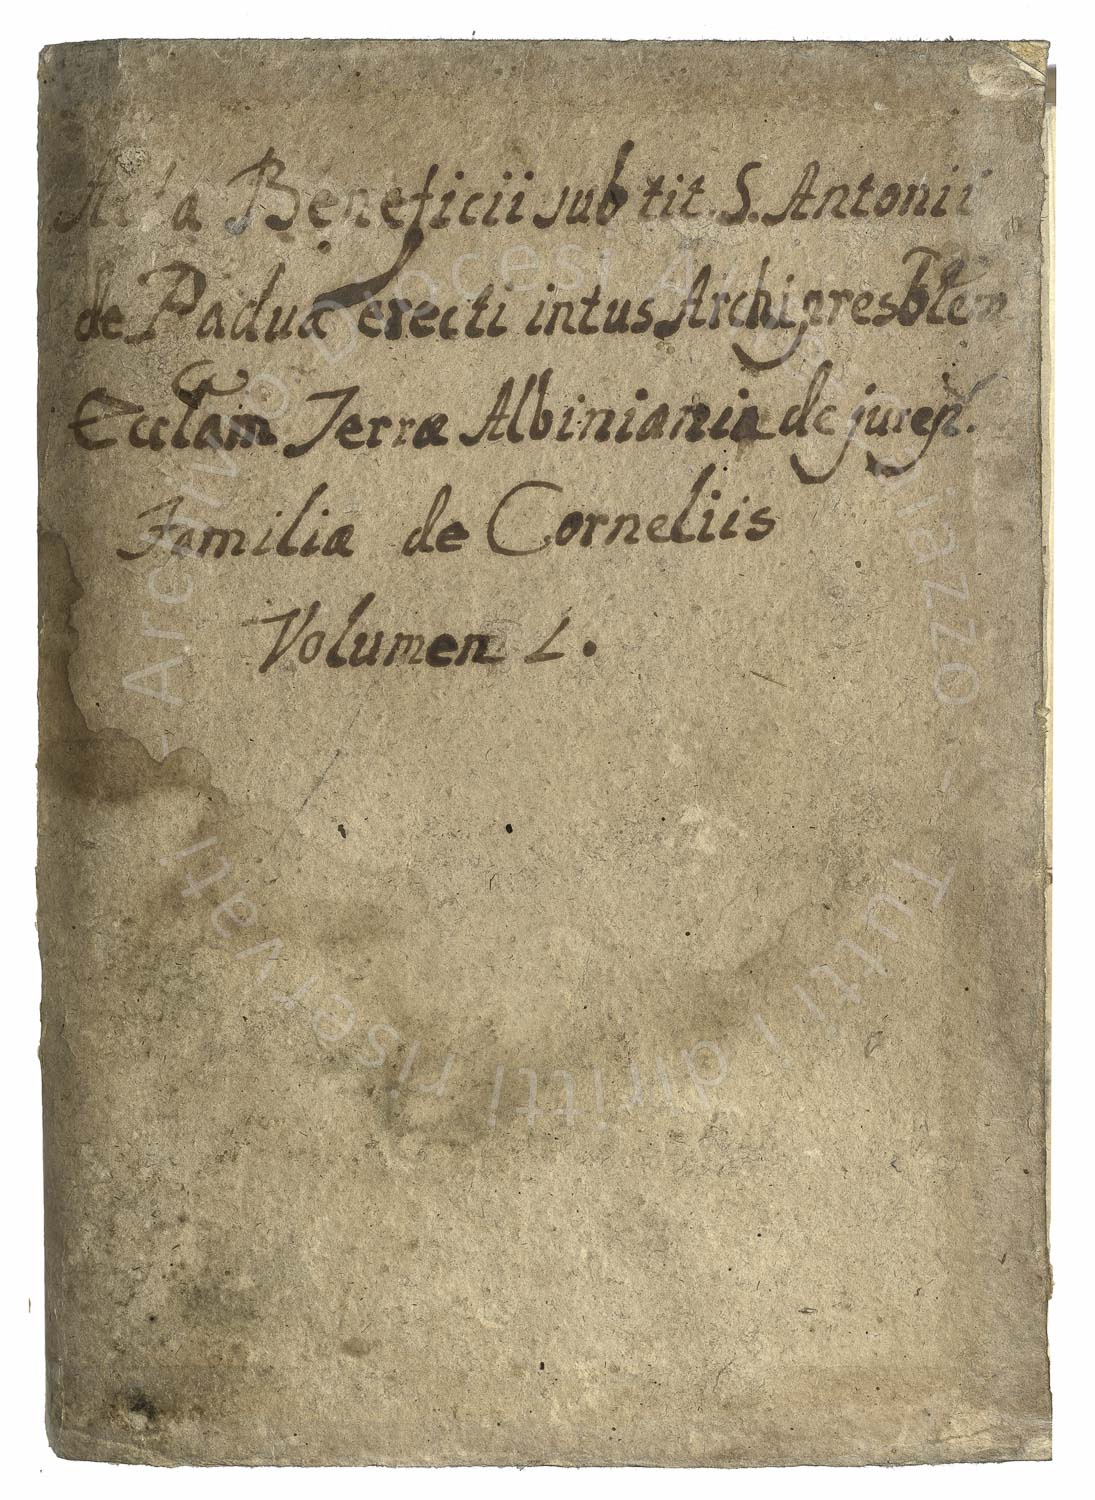 Acta Beneficii sub tit. S. Antonii
de Padua erecti intus Archipresbtem
Ecctam Terræ Albiniania de jurep.
Familiæ de Corneliis
Volumen L.
- Archivo Diocesi Alife Caiazzo - Tutti i diritti riservati